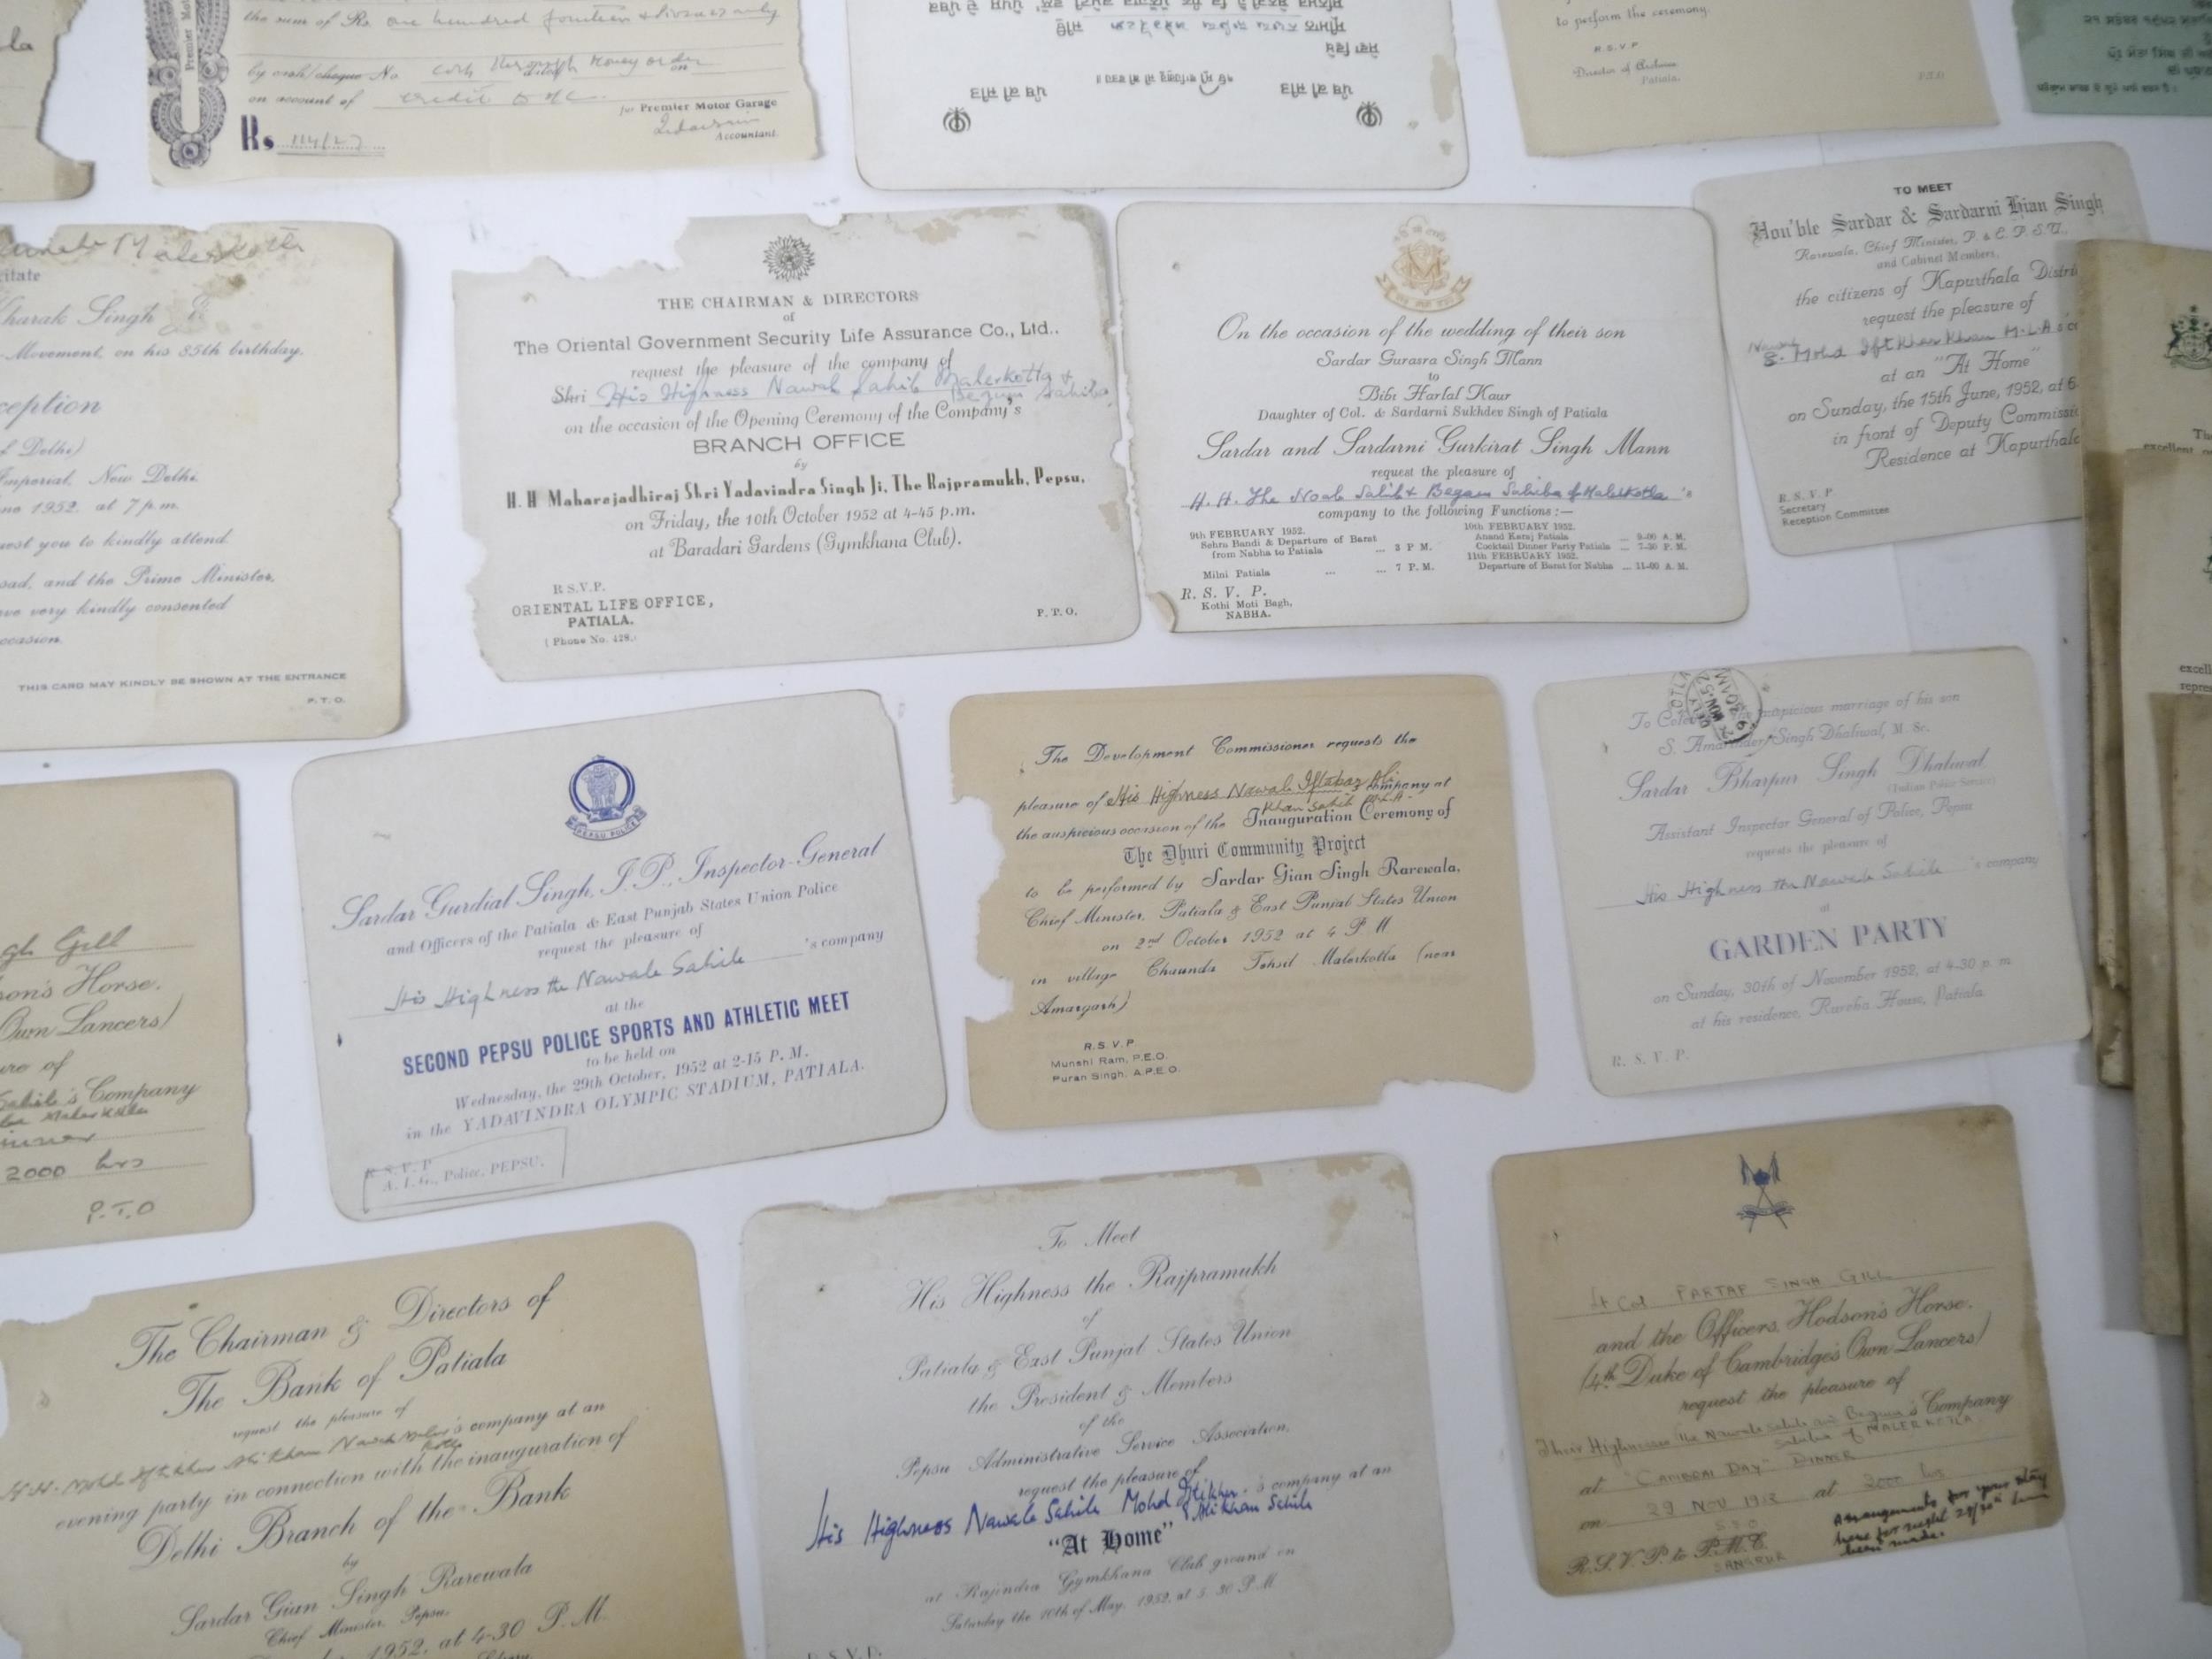 the sum of Rs one hundred fourteen & annas only
by cash/cheque No cash through money order
on account of credit to a/c.
for Premier Motor Garage
Accountant.
Rs 114/2/-
Premier Mot
to perform the ceremony.
R.S.V.P
Director of Archives
Patiala.
P.T.O
Malerkotla
citate
harak Singh
Movement, on his 85th birthday.
ception
f Delhi)
Imperial, New Delhi.
1952. at 7 p.m.
uest you to kindly attend.
sad, and the Prime Minister,
ave very kindly consented
occasion.
THIS CARD MAY KINDLY BE SHOWN AT THE ENTRANCE
P.T.O.
THE CHAIRMAN & DIRECTORS
of
The Oriental Government Security Life Assurance Co., Ltd..
request the pleasure of the company of
Shri His Highness Nawab Sahib Malerkotla &
Begum Sahiba
on the occasion of the Opening Ceremony of the Company's
BRANCH OFFICE
by
H. H Maharajadhiraj Shri Yadavindra Singh Ji, The Rajpramukh, Pepsu,
on Friday, the 10th October 1952 at 4-45 p.m.
at Baradari Gardens (Gymkhana Club).
R.S.V.P.
ORIENTAL LIFE OFFICE,
PATIALA.
( Phone No. 428.)
P. T. O.
On the occasion of the wedding of their son
Sardar Gurasra Singh Mann
to
Bibi Harlal Kaur
Daughter of Col. & Sardarni Sukhdev Singh of Patiala
Sardar and Sardarni Gurkirat Singh Mann
request the pleasure of
H. H. The Noab Sahib & Begam Sahiba of Malerkotla 's
company to the following Functions :—
9th FEBRUARY 1952.
Sehra Bandi & Departure of Barat
from Nabha to Patiala ... 3 P M.
Milni Patiala ... ... 7 P.M.
10th FEBRUARY 1952.
Anand Karaj Patiala ... 9-00 A. M.
Cocktail Dinner Party Patiala ... 7-30 P. M.
11th FEBRUARY 1952.
Departure of Barat for Nabha ... 11-00 A. M.
R. S. V. P.
Kothi Moti Bagh,
NABHA.
TO MEET
Hon'ble Sardar & Sardarni Gian Singh
Rarewala, Chief Minister, P. & E. P. S. U.,
and Cabinet Members,
the citizens of Kapurthala Distri
request the pleasure of
Nawab
S. Mohd Iftkhar Khan M.L.A's co
at an "At Home"
on Sunday, the 15th June, 1952, at 6
in front of Deputy Commissi
Residence at Kapurthala
R. S. V. P.
Secretary
Reception Committee
gh Gill
son's Horse.
Own Lancers)
ure of
Sahib's Company
2000 hrs
P.T.O
PEPSU POLICE
Sardar Gurdial Singh, I. P., Inspector-General
and Officers of the Patiala & East Punjab States Union Police
request the pleasure of
His Highness the Nawab Sahib 's company
at the
SECOND PEPSU POLICE SPORTS AND ATHLETIC MEET
to be held on
Wednesday, the 29th October, 1952 at 2-15 P. M.
in the YADAVINDRA OLYMPIC STADIUM, PATIALA.
R. S. V. P
A. I. G., Police, PEPSU.
The Development Commissioner requests the
pleasure of His Highness Nawab Iftakar Ali company at
Khan Sahib M.L.A.
the auspicious occasion of the Inauguration Ceremony of
The Dhuri Community Project
to be performed by Sardar Gian Singh Rarewala,
Chief Minister, Patiala & East Punjab States Union
on 2nd October 1952 at 4 P M
in village Chaunda Tehsil Malerkotla (near
Amargarh)
R.S.V.P.
Munshi Ram, P.E.O.
Puran Singh, A.P.E.O.
To auspicious marriage of his son
S. Amarinder Singh Dhaliwal, M. Sc.
Sardar Bharpur Singh Dhaliwal
(Indian Police Service)
Assistant Inspector General of Police, Pepsu
requests the pleasure of
His Highness the Nawab Sahib 's company
at
GARDEN PARTY
on Sunday, 30th of November 1952, at 4-30 p. m.
at his residence, Rureba House, Patiala
R. S. V. P.
The Chairman & Directors of
The Bank of Patiala
request the pleasure of
H.H. Mohd Iftikhar Ali Khan Nawab Maler's company at an
kotla
evening party in connection with the inauguration of
Delhi Branch of the Bank
by
Sardar Gian Singh Rarewala
Chief Minister, Pepsu.
1952, at 4-30 P. M.
To Meet
His Highness the Rajpramukh
of
Patiala & East Punjab States Union
the President & Members
of the
Pepsu Administrative Service Association,
request the pleasure of
His Highness Nawab Sahib Mohd Iftikhar 's company at an
Ali Khan Sahib
"At Home"
at Rajindra Gymkhana Club ground on
Saturday the 10th of May, 1952, at 5.30 P.M
R. S. V. P.
Lt Col PARTAP SINGH GILL
and the Officers, Hodson's Horse.
(4th Duke of Cambridge's Own Lancers)
request the pleasure of
Their Highnesses The Nawab Sahib and Begum's Company
Sahiba of MALERKOTLA
at "CAMBRAI DAY" DINNER
on 29 NOV 1952 at 2000 hrs
R.S.V.P. to P.M.C.
SANGRUR
Arrangements for your stay
here for night 29/30th have
been made.